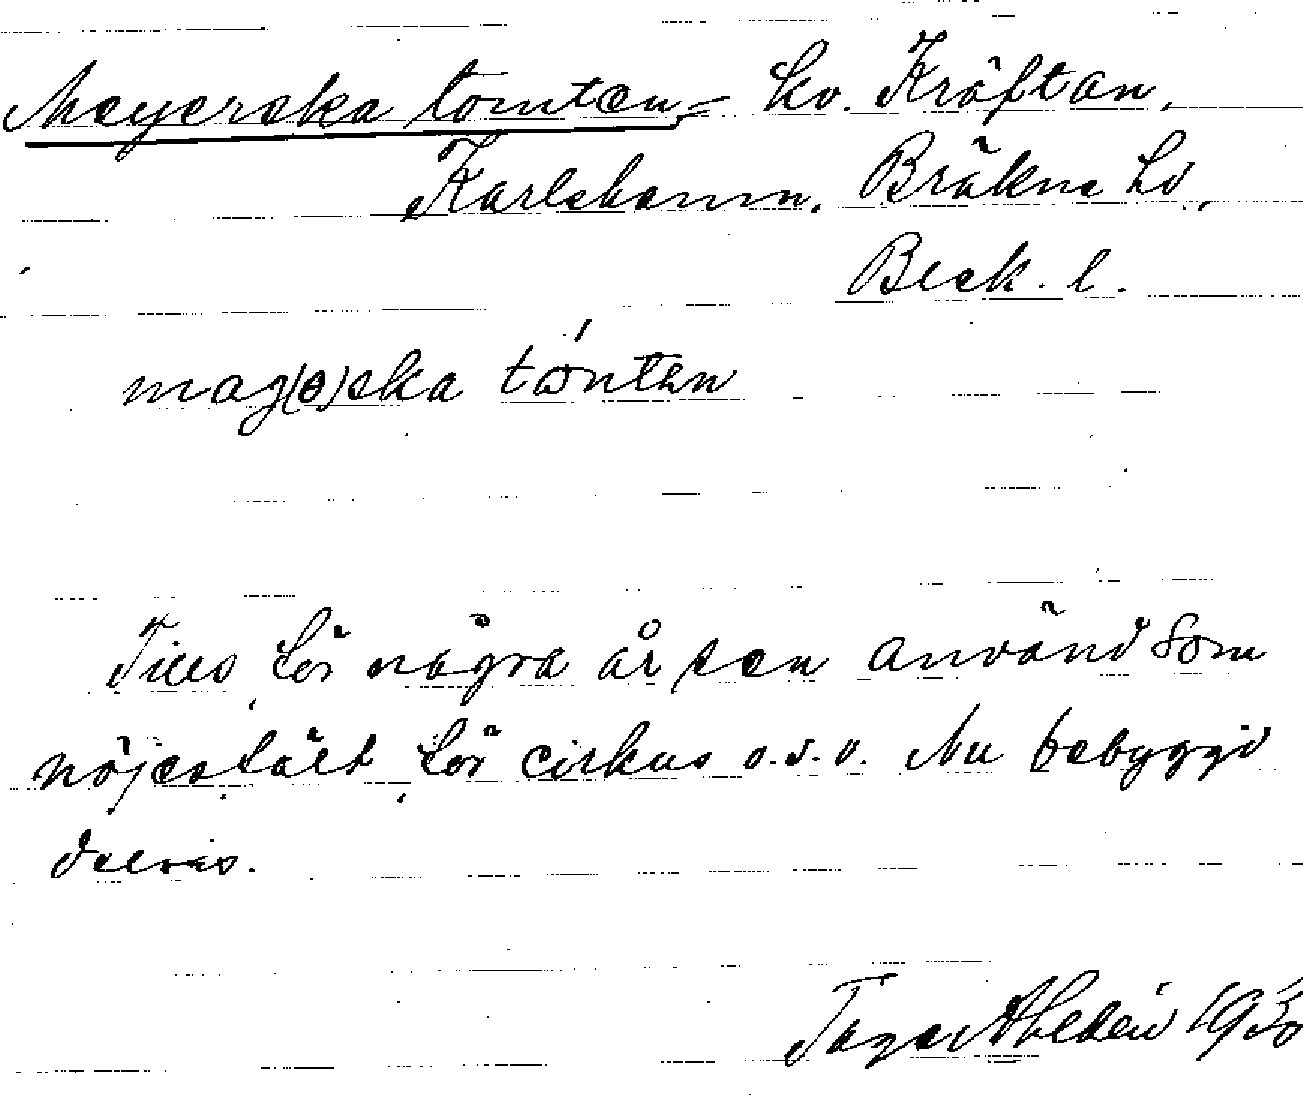 Meyerska tomten = kv. Kräftan,
Karlshamn. Bräkne hd,
Blek. l.
mag(ə)ska tòntən
Tills för några år sen använd som
nöjesfält för cirkus o.s.v. Nu bebyggd
delvis.
Tage Ahldén 1930